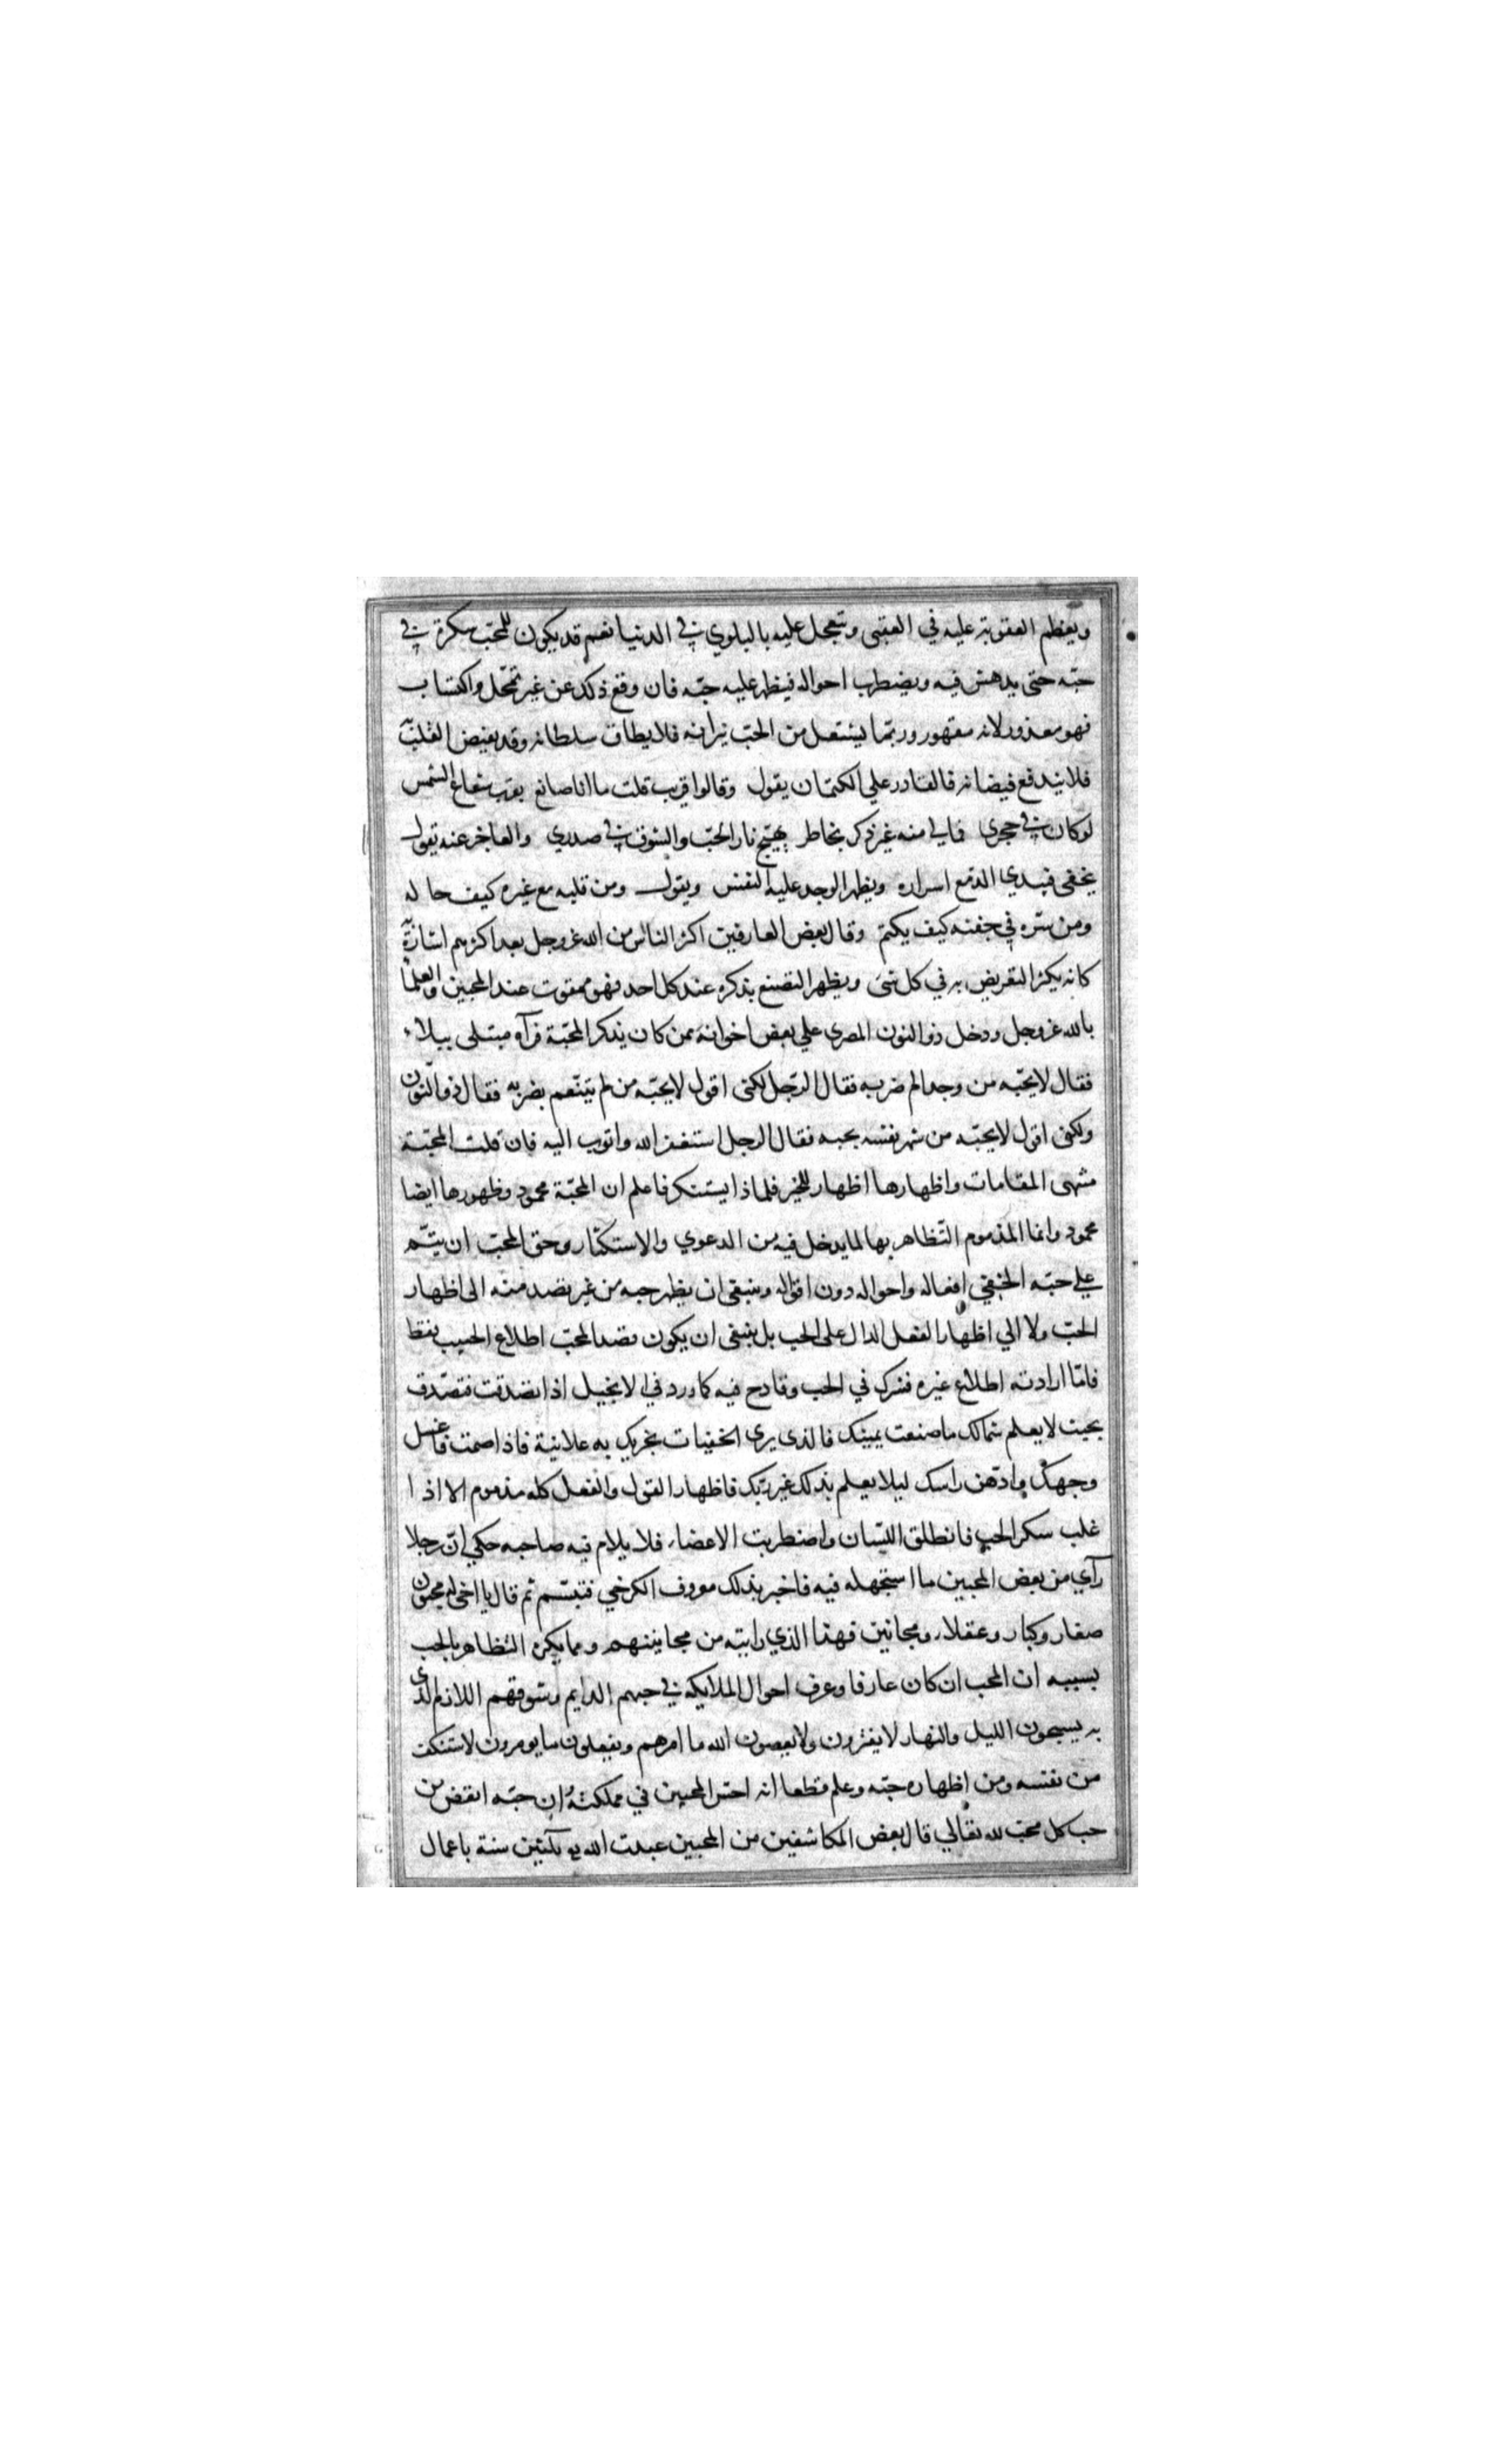 ويعظم العقوبة عليه في العقبى وتعجل عليه بالبلوي في الدنيا نعم قد يكون للمحب سكرة في
حبّه حتى يدهش فيه ويضطرب احواله فيظهر عليه حبّه فان وقع ذلك عن غير تمحّل واكتساب
فهو معذور لانه مقهور وربّما يشتعل من الحبّ نيرانه فلا يطاق سلطانه وقد يفيض القلب
فلا يندفع فيضانه فالقادر علي الكتمان يقول وقالوا قريب قلت ما انا صانع بقرب شعاع الشمس
لو كان في حجري فمالي منه غير ذكر بخاطر يهيّج نار الحبّ والشوق في صدري والعاجز عنه يقول
يخفى فيبدي الدمع اسراره ويظهر الوجد عليه النفس ويقول ومن قلبه مع غيره كيف حاله
ومن سرّه في جفنه كيف يكتم وقال بعض العارفين اكثر الناس من الله عزوجل بعدا اكثرهم اشارة
كانه يكثر التعريض به في كل شئ ويظهر التصنع بذكره عند كل احد فهو ممقوت عند المحبين والعلما
بالله عزوجل ودخل ذو النون المصري علي بعض اخوانه ممن كان يذكر المحبّة فرآه مبتلى ببلاء
فقال لا يحبّه من وجد الم ضربه فقال الرّجل لكنى اقول لا يحبّه من لم يتنّعم بضربه فقال ذو النّون
ولكنى اقول لا يحبّه من شهر نفسه بحبه فقال الرجل استغفر الله واتوب اليه فان قلت المحبّة
منتهى المقامات واظهارها اظهار للخير فلماذا يستنكر فاعلم ان المحبّة محمود وظهورها ايضا
محمود وانما المذموم التّظاهر بها لما يدخل فيه من الدعوي والاستكثار وحق المحبّ ان يتمّ
علي حبّه الخفي افعاله واحواله دون اقواله وينبغى ان يظهر حبه من غير قصد منه الى اظهار
الحبّ ولا الي اظهار الفعل الدال على الحب بل ينبغى ان يكون قصد المحبّ اطلاع الحبيب فقط
فامّا ارادته اطلاع غيره فشرك في الحب وقادح فيه كما ورد في الانجيل اذا تصدقت فتصّدق
بحيث لا يعلم شمالك ما صنعت يمينك فالذى يرى الخفيات يجزيك به علانية فاذا صمت فاغسل
وجهك وادّهن راسك ليلا يعلم بذلك غير ربّك فاظهار القول والفعل كله مذموم الا اذا
غلب سكر الحب فانطلق اللسّان واضطربت الاعضاء فلا يلام فيه صاحبه حكي انّ رجلا
رآي من بعض المحبين ما استجهله فيه فاخبر بذلك معروف الكرخي فتبسّم ثم قال يا اخى له محبّون
صغار وكبار وعقلاء ومجانين فهذا الذي رايته من مجانينهم ومما يكره التظاهر بالحب
بسببه ان المحب ان كان عارفا وعرف احوال الملايكه في حبهم الدايم وشوقهم اللازم الذي
به يسبحون الليل والنهار لا يفترون ولا يعصون الله ما امرهم ويفعلون ما يومرون لاستنكف
من نفسه ومن اظهاره حبّه وعلم قطعا انه اخس المحبين في مملكته وان حبّه انقص من
حب كل محبّ لله تعالي قال بعض المكاشفين من المحبين عبدت الله ثلثين سنة باعمال